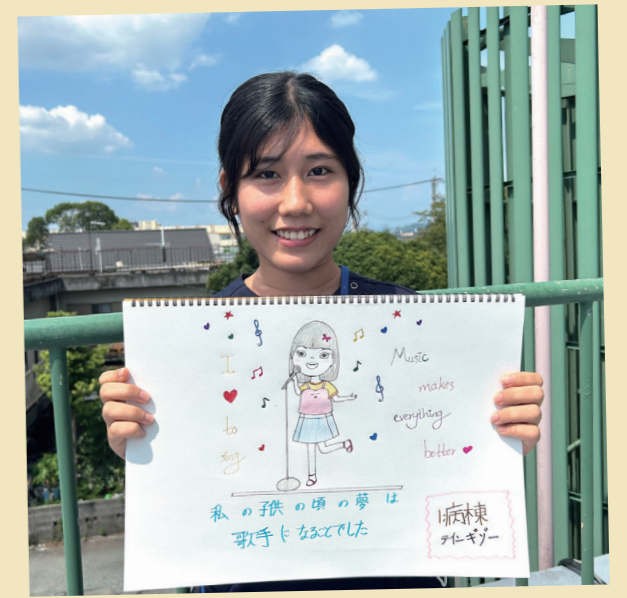 I
♥
to
sing
Music
makes
everything
better ♥
私の子供の頃の夢は
歌手になることでした
1病棟
テインギゾー